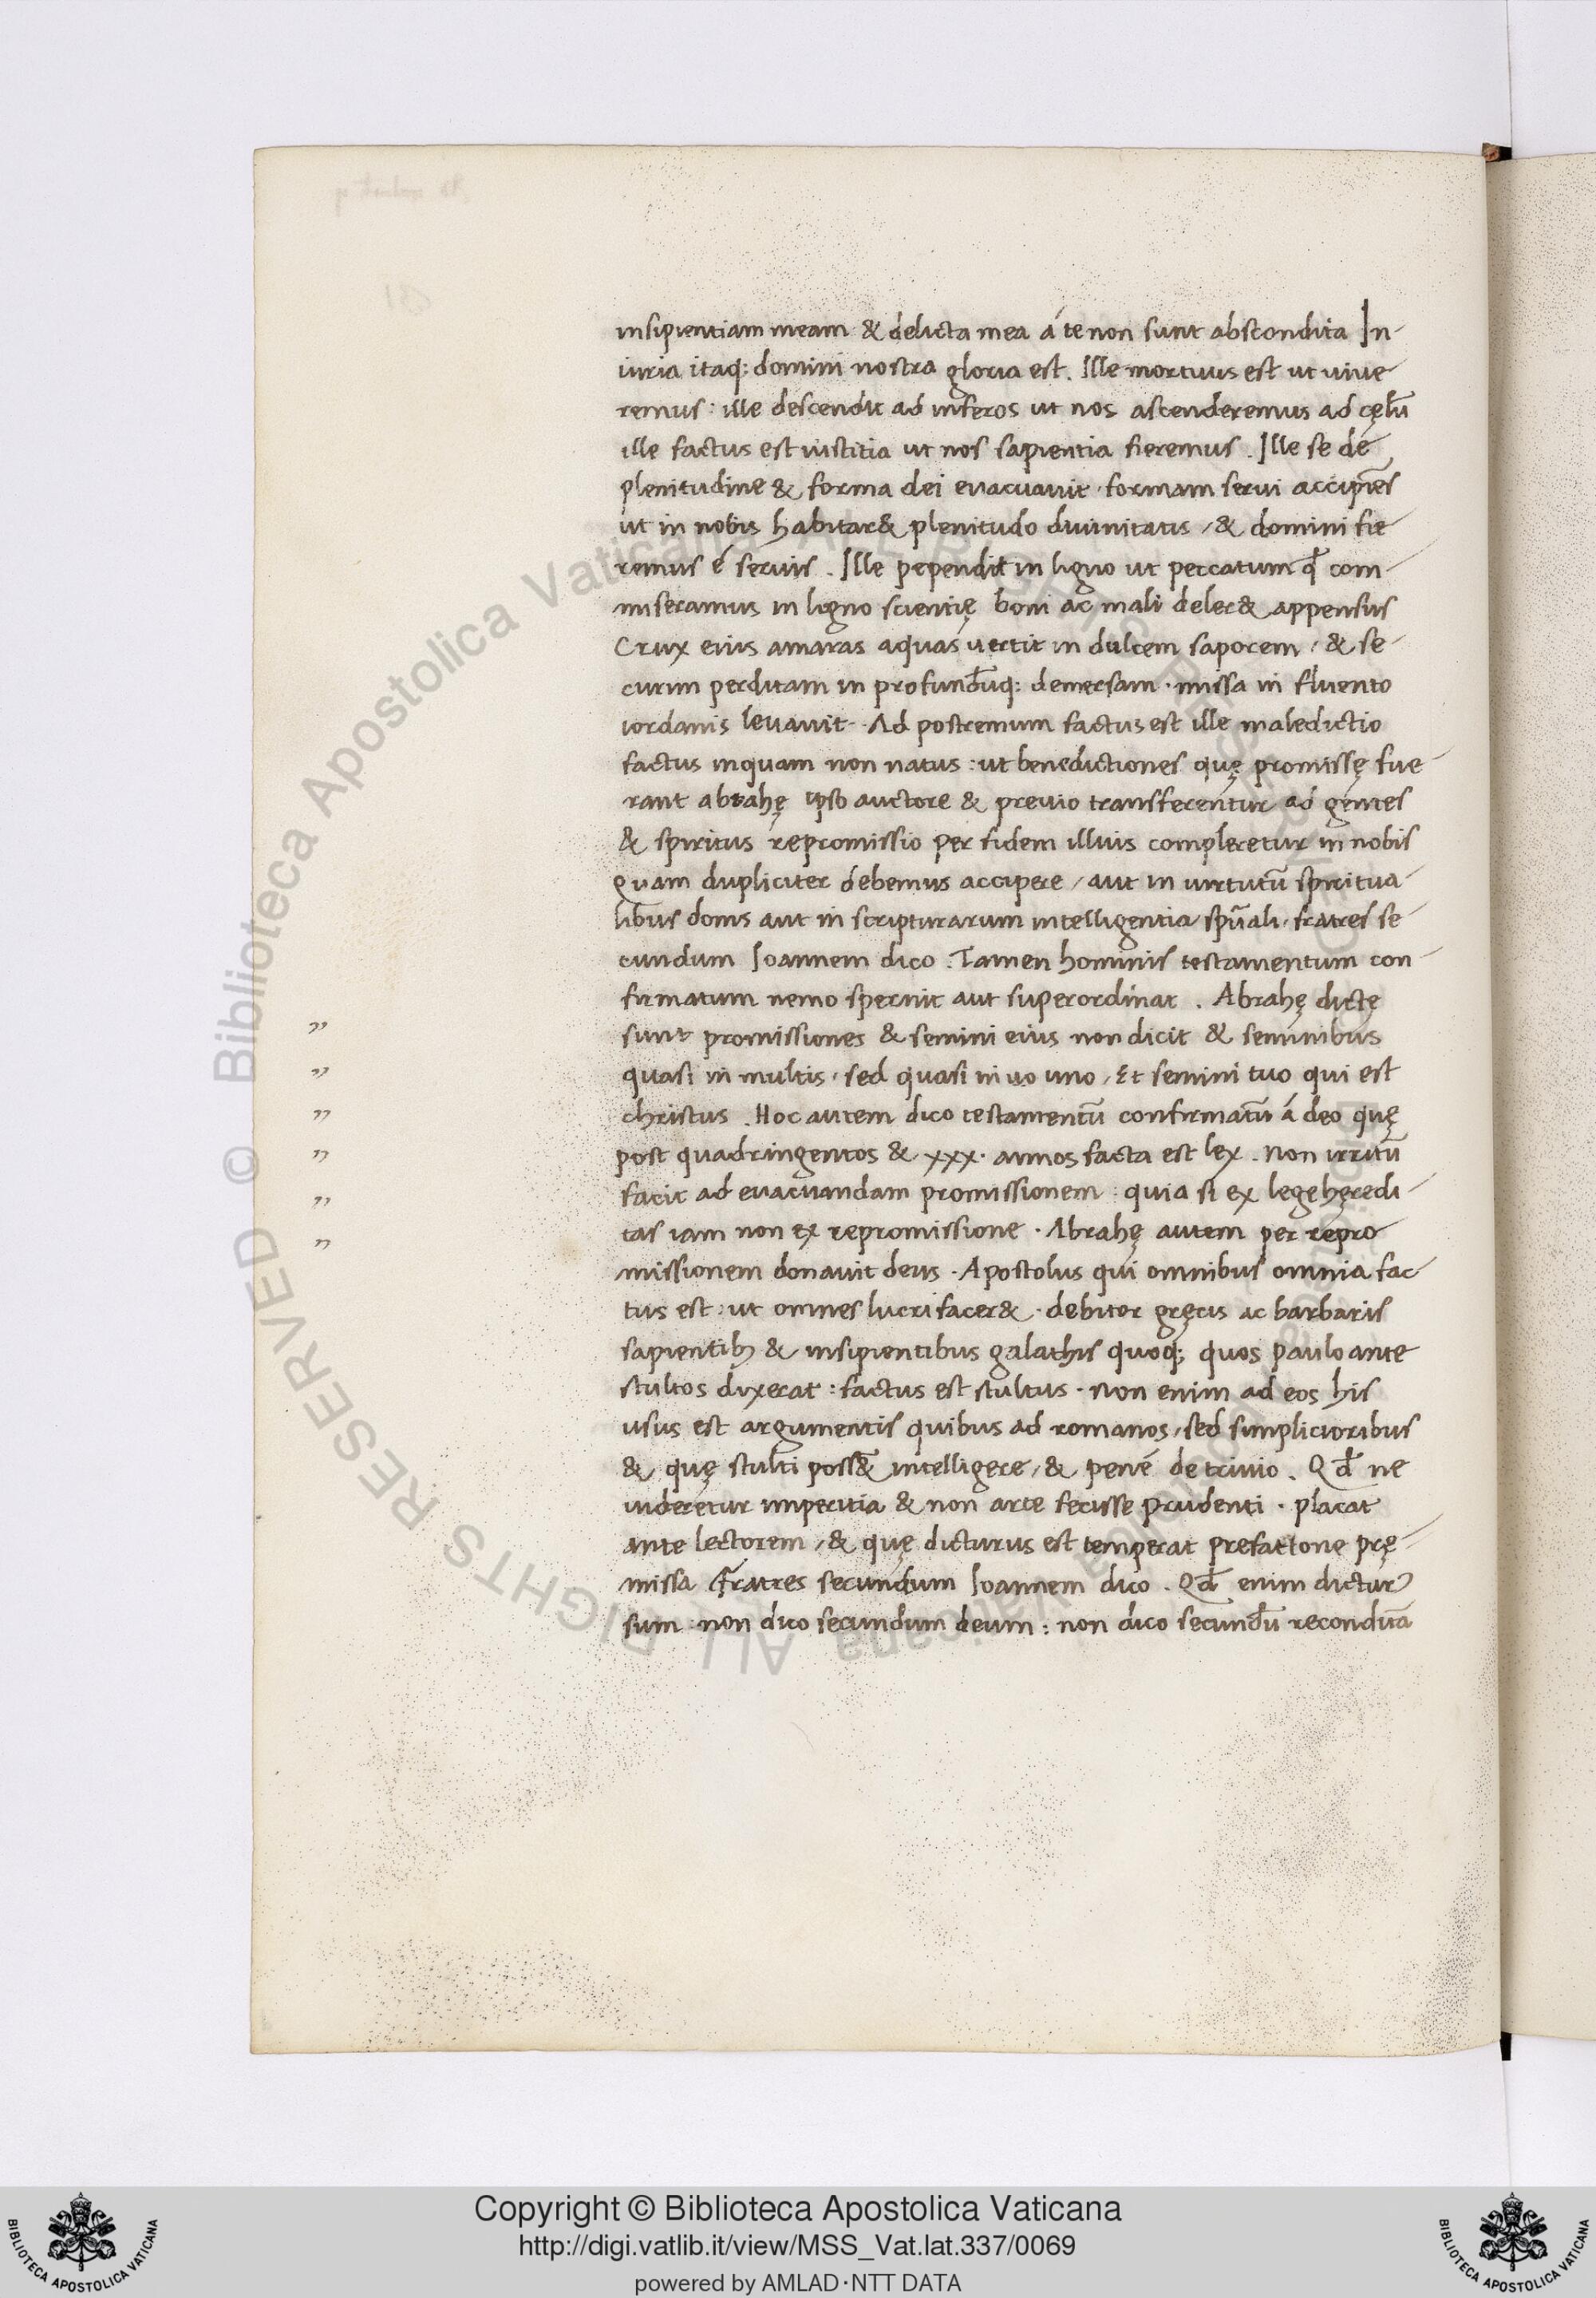 insipientiam meam & delicta mea á te non sunt abscondita In-
iuria itaq; domini nostra gloria est. Ille mortuus est ut uiue-
remus: ille descendit ad inferos ut nos ascenderemus ad cęlū
ille factus est iustitia ut nos sapientia fieremus. Ille se de
plenitudine & forma dei euacuauit. formam serui accipiēs
ut in nobis habitar& plenitudo diuinitatis, & domini fie-
remus é seruis. Ille pependit in ligno ut peccatum qd̄ com-
miseramus in ligno scientię boni ac mali deler& appensus
Crux eius amaras aquas uertit in dulcem saporem, & se-
curim perditam in profundūq; demersam. missa in fluento
iordanis leuauit. Ad postremum factus est ille maledictio
factus inquam non natus: ut benedictiones quę promissę fue-
rant abrahę ipso auctore & preuio transferentur ad gentes
& spiritus repromissio per fidem illius compleretur in nobis
quam dupliciter debemus accipere, aut in uirtutū spiritua-
libus donis aut in scripturarum intelligentia spūali. fratres se-
cundum Ioannem dico. Tamen hominis testamentum con-
firmatum nemo spernit aut superordinat. Abrahę dictę
sunt promissiones & semini eius non dicit & seminibus
quasi in multis, sed quasi in uo uno, Et semini tuo qui est
christus. Hoc autem dico testamentū confirmatū á deo quę
post quadringentos & xxx. annos facta est lex. Non irritū
facit ad euacuandam promissionem: quia si ex lege hęredi-
tas iam non ex repromissione. Abrahę autem per repro
missionem donauit deus. Apostolus qui omnibus omnia fac-
tus est: ut omnes lucrifacer&. debitor gręcis ac barbaris
sapientib; & insipientibus galathis quoq; quos paulo ante
stultos dixerat: factus est stultus. Non enim ad eos his
usus est argumentis quibus ad romanos, sed simplicioribus
& quę stulti poss& intelligere, & pené de triuio. Qd̄ ne
uideretur imperitia & non arte fecisse prudenti. placat
ante lectorem, & quę dicturus est temperat prefatione prę-
missa Fratres secundum Ioannem dico. Qd̄ enim dictur9
sum: non dico secundum deum: non dico secundū reconditā
„
„
„
„
„
„
© Biblioteca Apostolica Vaticana ALL RIGHTS RESERVED
Copyright © Biblioteca Apostolica Vaticana
http://digi.vatlib.it/view/MSS_Vat.lat.337/0069
powered by AMLAD·NTT DATA
BIBLIOTECA APOSTOLICA VATICANA
BIBLIOTECA APOSTOLICA VATICANA